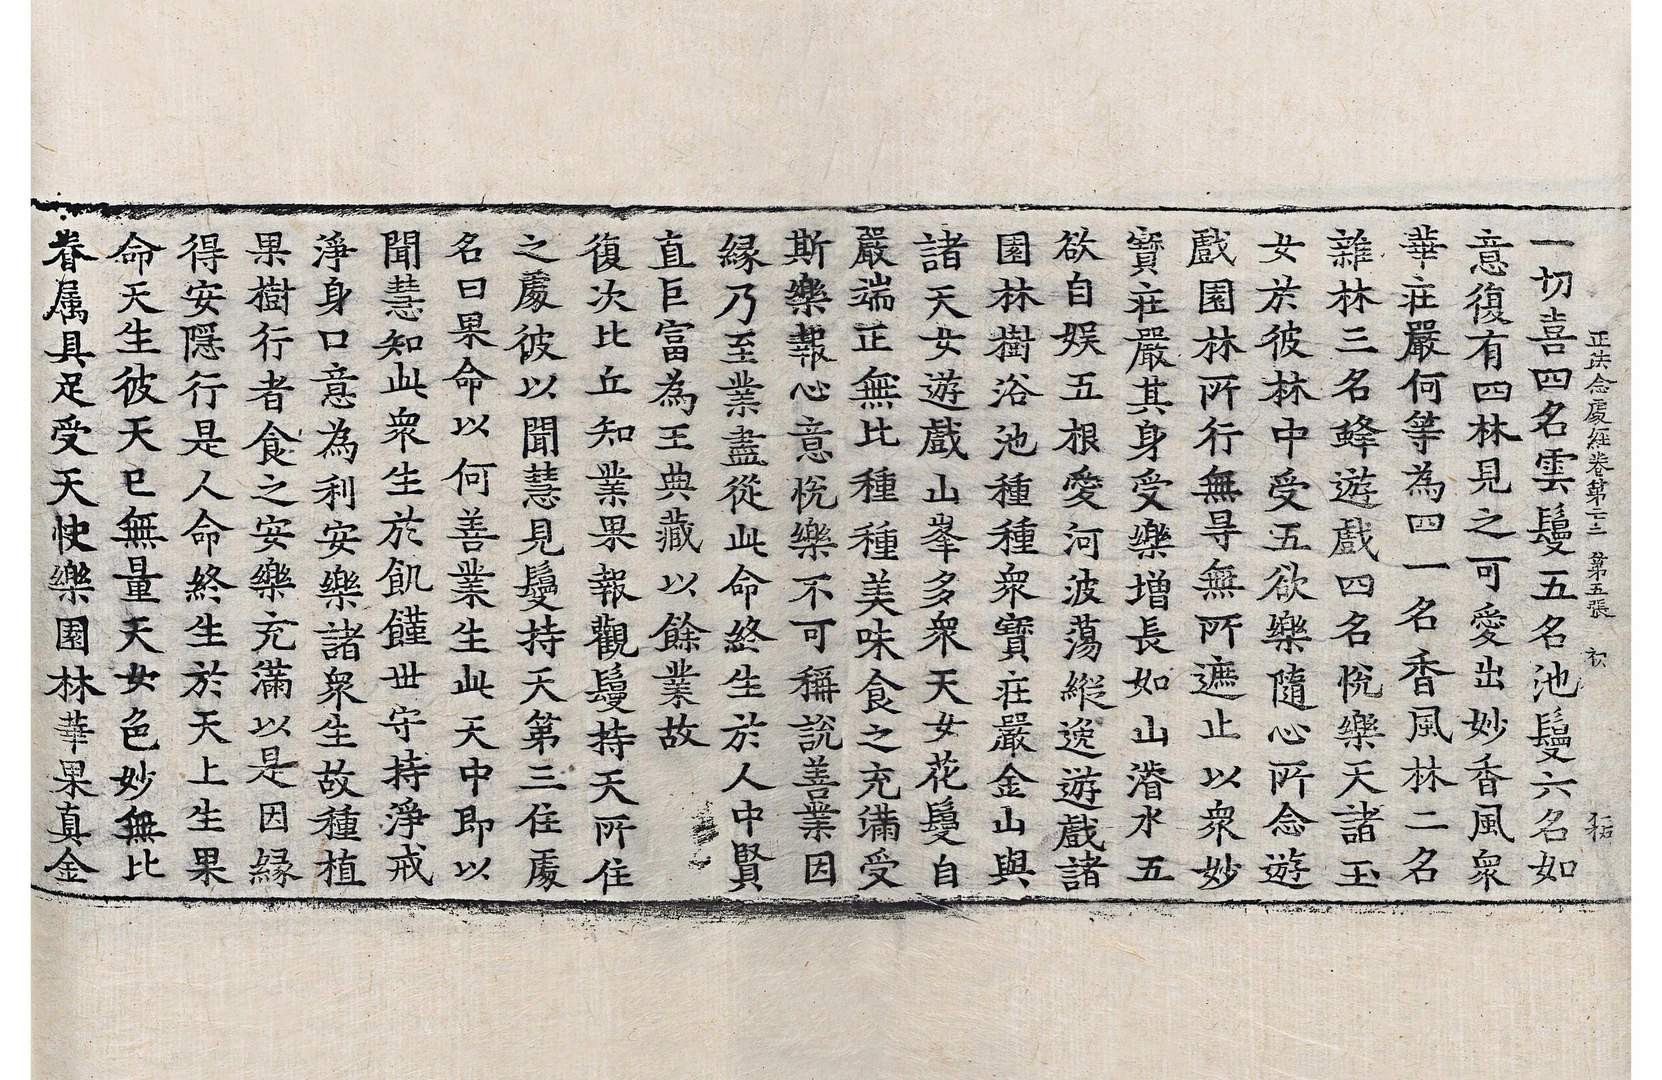 正法念處經卷第二十二 第五張 初
一切喜四名雲鬘五名池鬘六名如
意復有四林見之可愛出妙香風衆
華庄嚴何等為四一名香風林二名
雜林三名蜂遊戲四名悅樂天諸玉
女於彼林中受五欲樂隨心所念遊
戲園林所行無㝵無所遮止以衆妙
寶庄嚴其身受樂增長如山澬水五
欲自娛五根愛河波蕩縱逸遊戲諸
園林樹浴池種種衆寶庄嚴金山與
諸天女遊戲山峯多衆天女花鬘自
嚴端正無比種種美味食之充滿受
斯樂報心意悅樂不可稱說善業因
緣乃至業盡從此命終生於人中賢
直巨富為王典藏以餘業故
復次比丘知業果報觀鬘持天所住
之處彼以聞慧見鬘持天第三住處
名曰果命以何善業生此天中即以
聞慧知此衆生於飢饉世守持淨戒
淨身口意為利安樂諸衆生故種植
果樹行者食之安樂充滿以是因緣
得安隱行是人命終生於天上生果
命天生彼天已無量天女色妙無比
眷属具足受天快樂園林華果真金